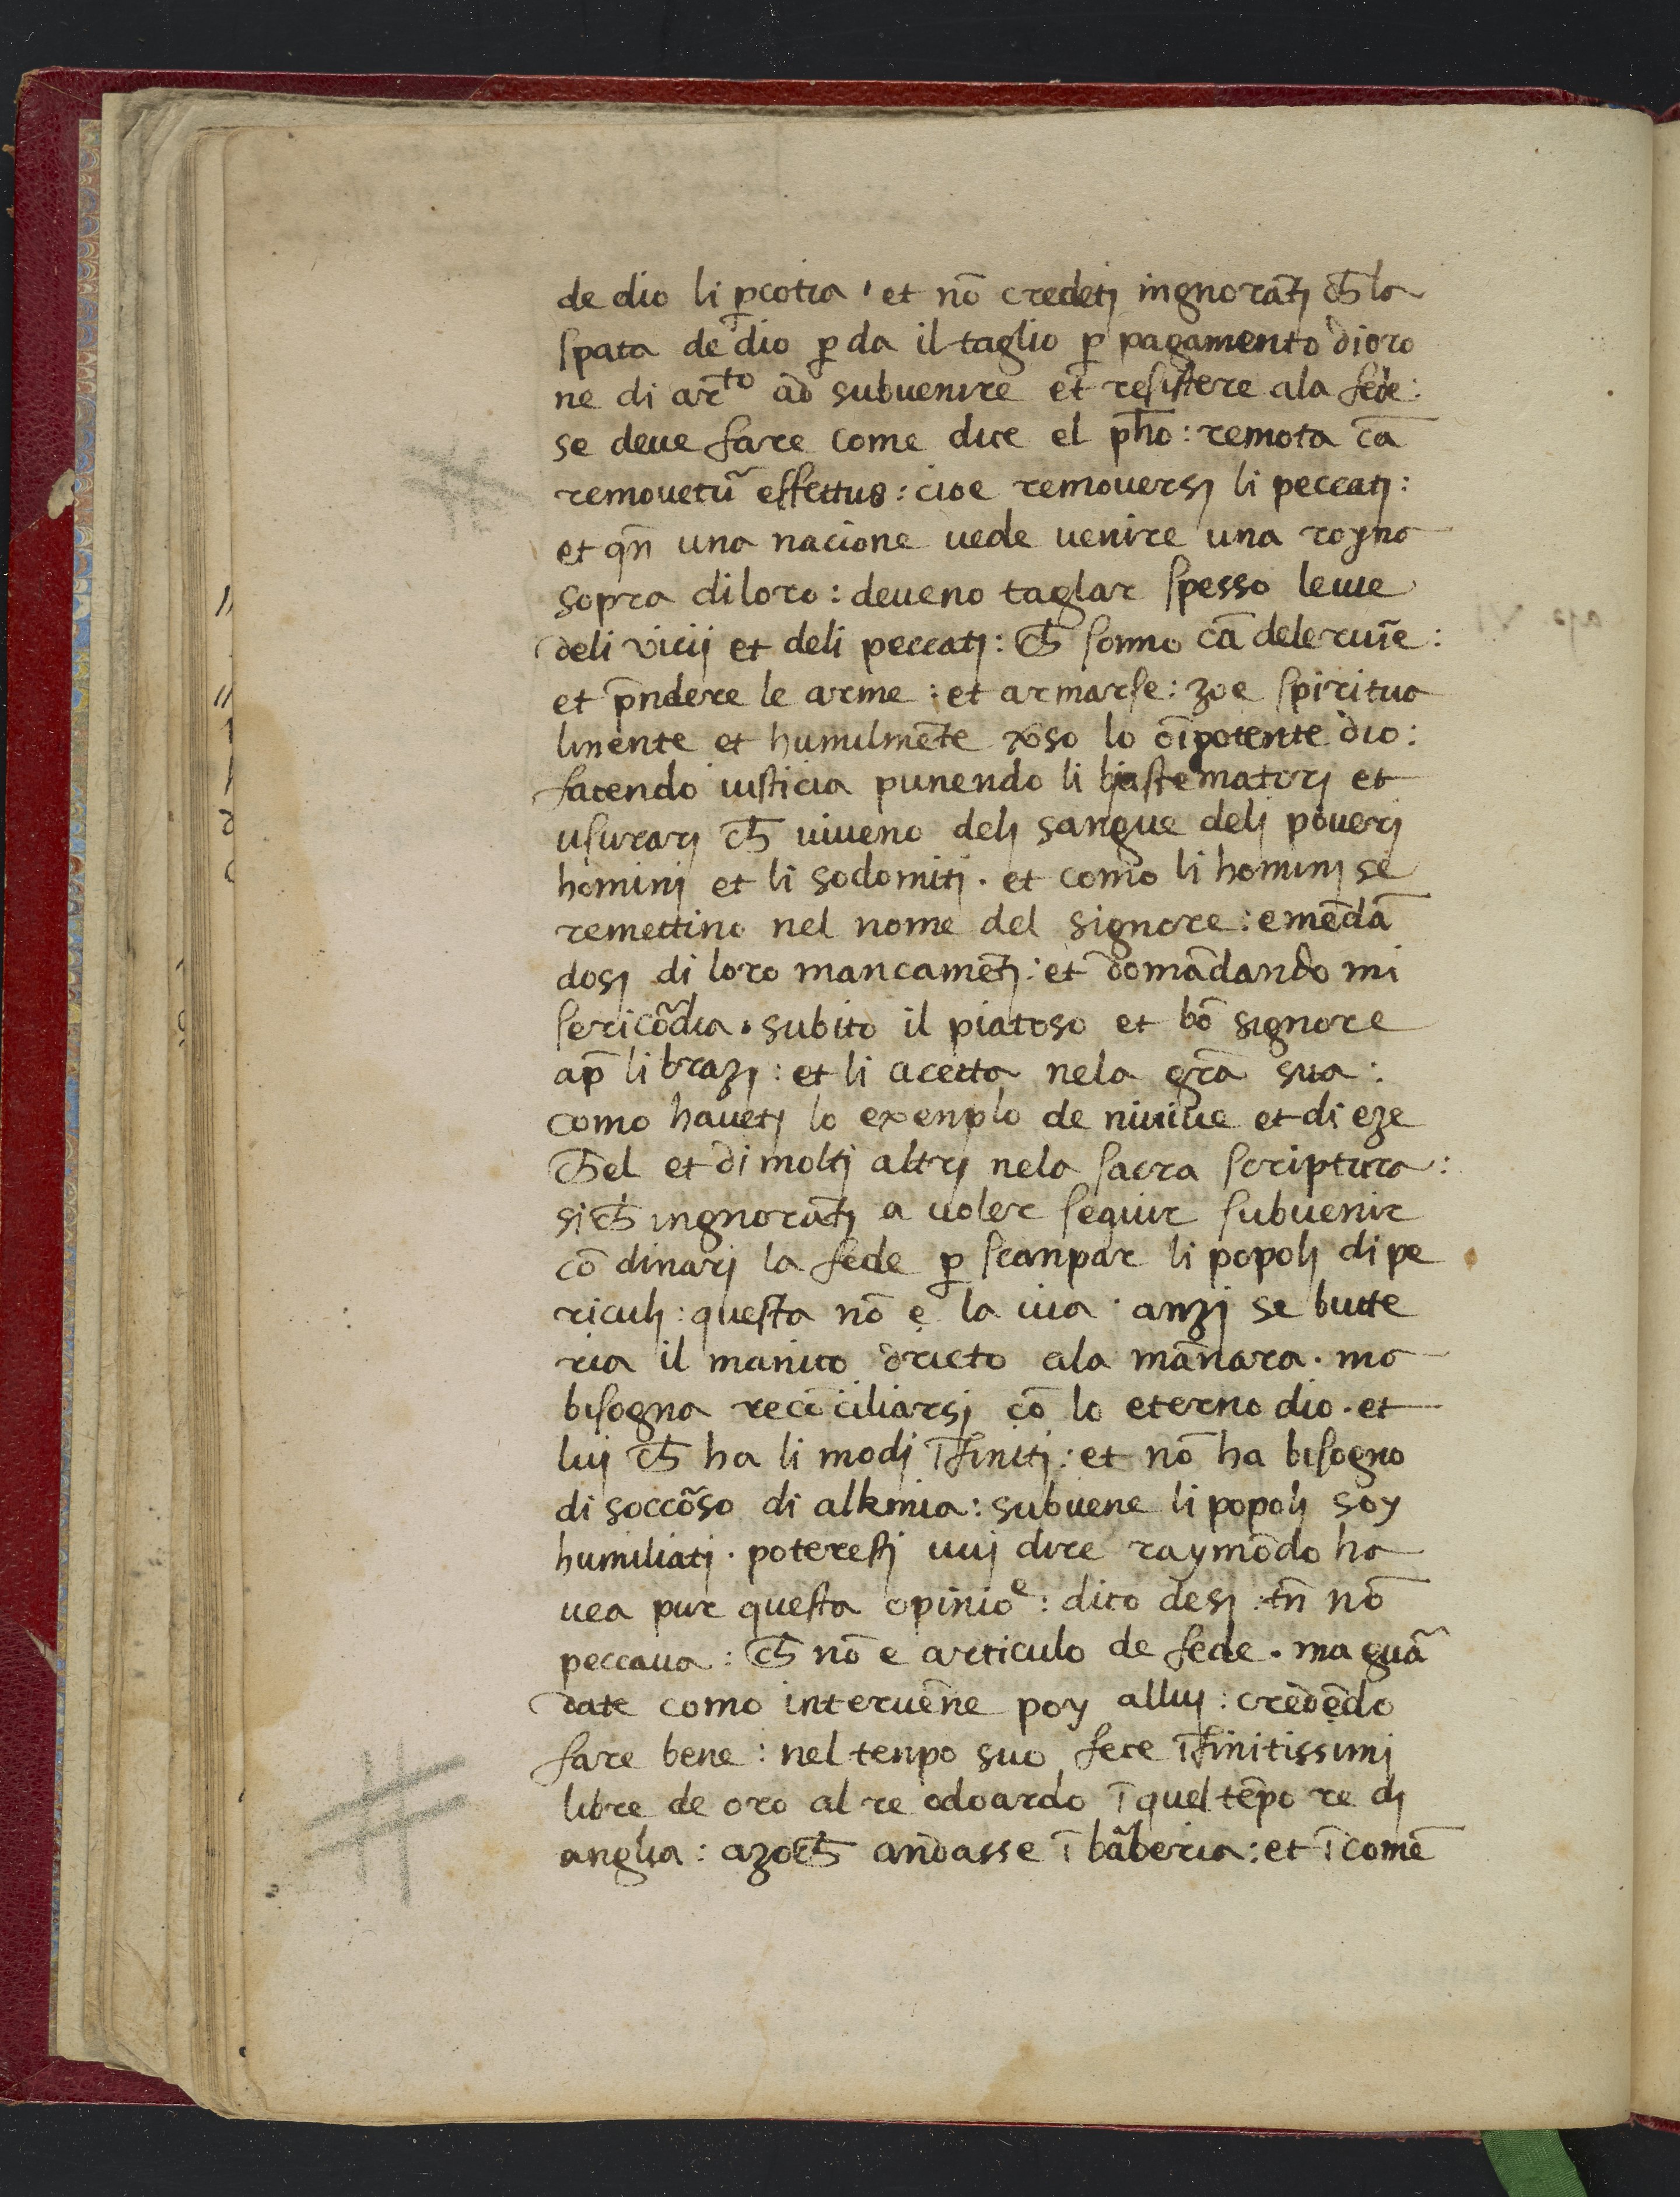 de dio li ꝑcotia et nō credetj ingnorātj ch̄ la
spata de dio ꝑda il taglio ꝑ pagamento di oro
ne di ar̄to ad subuenire et resistere ala fede:
se deue fare come dice el ph̄o: remota cā
remouetu᷑ effettus: cioe remouersj li peccatj:
et qn̄ una nacione uede uenire una royna
sopra di loro: deueno taglar spesso leuie
deli vicij et deli peccatj: ch̄ sonno cā dele ruīe:
et p̄ndere le arme: et armarse: zoe spiritua
lmente et humilmēte v̄so lo oīpotente dio:
facendo iusticia punendo li biastematorj et
usurarj ch̄ uiueno delj sangue delj pouerj
hominj et li sodomitj. et como li hominj se
remettino nel nome del signore: emēdā
dosj di loro mancamētj: et domādando mi
sericōdia. subito il piatoso et bō signore
ap̄ li brazj: et li acetta nela grā sua:
como hauetj lo exenplo de niniue et di eze
ch̄el et di moltj altrj nela sacra scriptura:
sich̄ ingnorātj a uoler seguir subuenir
cō dinarj la fede ꝑ scanpar li popolj di pe
riculj: questa nō e la uia. anzj se butte
ria il manico drieto ala mānara. ma
bisogna recōciliarsj cō lo eterno dio. et
luj ch̄ ha li modj īfinitj: et nō ha bisogno
di soccōso di alkimia: subuene li popolj soy
humiliatj. poterestj uuj dire raymōdo ha
uea pur questa opinioe: dico desj. tn̄ nō
peccaua: ch̄ nō e articulo de fede. ma guā
date como interuēne poy alluj: credēdo
fare bene: nel tenpo suo fece īfinitissimj
libre de oro al re odoardo ī quel tēpo re dj
anglia: azoch̄ andasse ī bābería: et ī comē